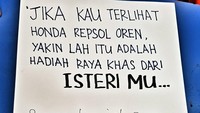 'JIKA KAU TERLIHAT
HONDA REPSOL OREN,
YAKIN LAH ITU ADALAH
HADIAH RAYA KHAS DARI
ISTERI MU...